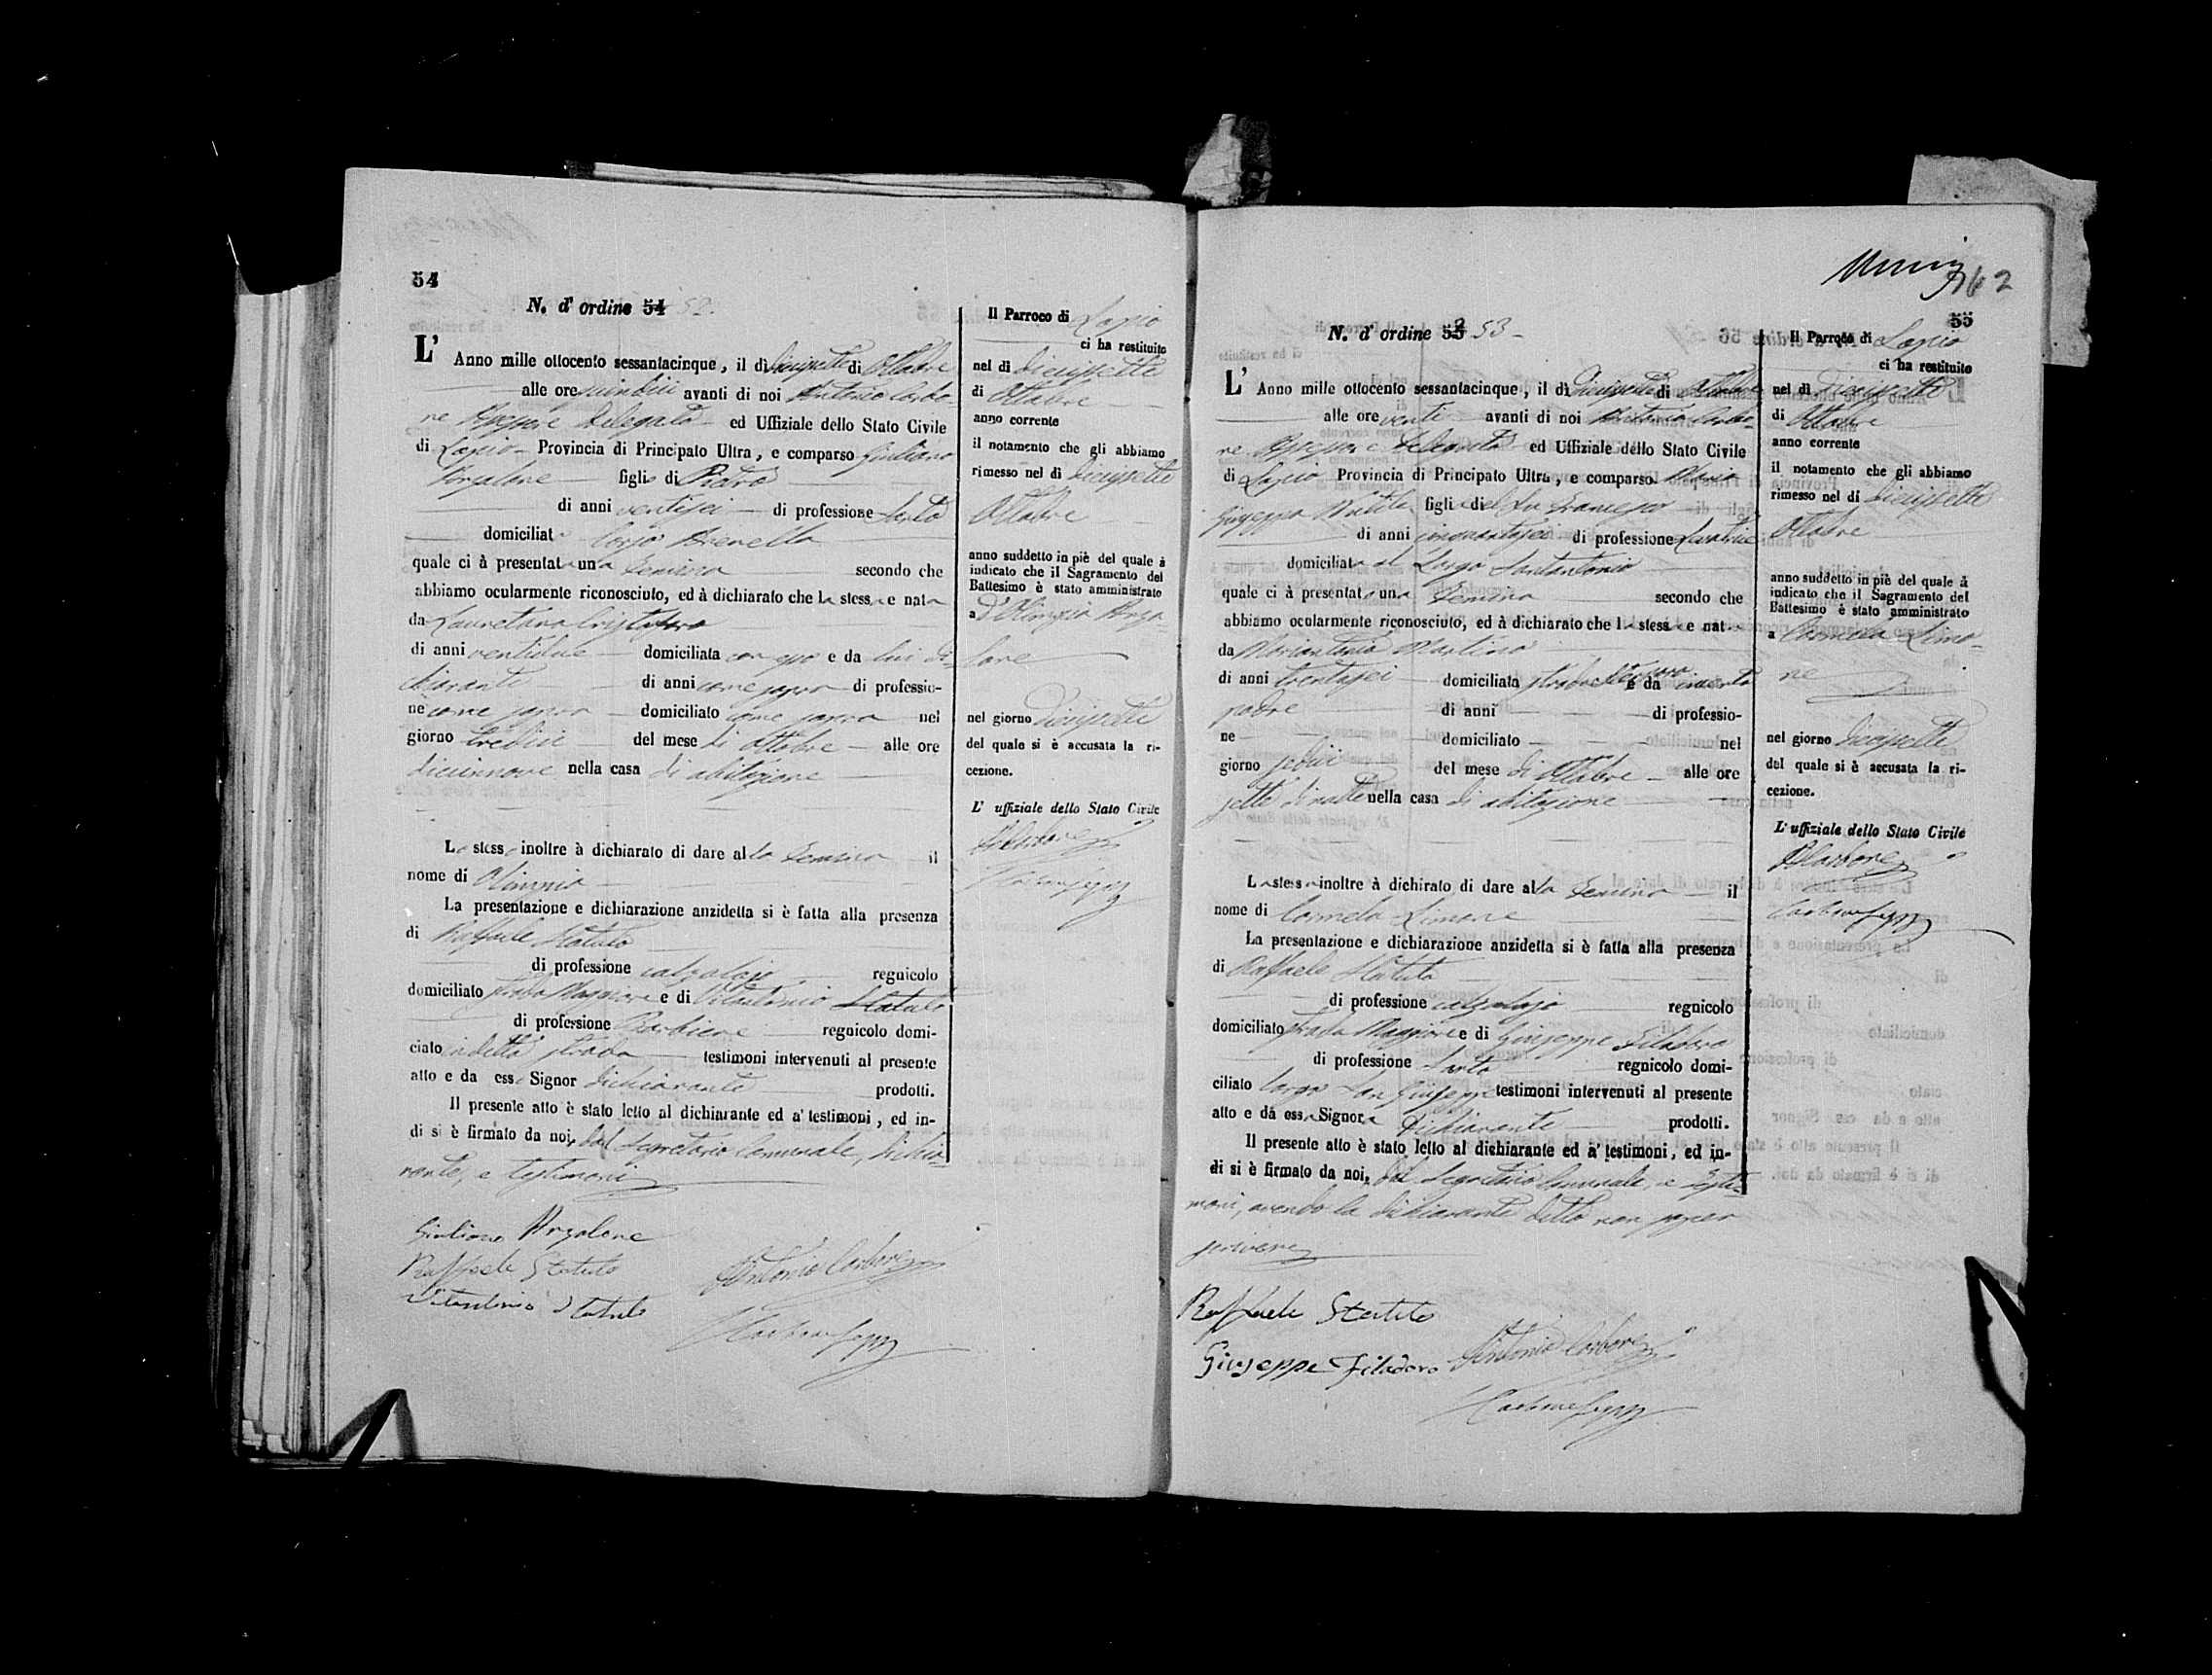 54
N. d' ordine 54 52.
L' Anno mille ottocento sessantacinque, il dì diciassette di Ottobre
alle ore avanti di noi Antonio Carbo-
ne Assessore Delegato ed Uffiziale dello Stato Civile
di Lapio Provincia di Principato Ultra, e comparso Giuliano
Argalone figlio di Pietro
di anni ventisei di professione Sarto
domiciliato Corso Arenella
quale ci à presentata una femina secondo che
abbiamo ocularmente riconosciuto, ed à dichiarato che la stessa e nata
da Lauretana
di anni domiciliata con esso e da lui di-
chiarante di anni come sopra di professio-
ne come sopra domiciliato come sopra nel
giorno tredici del mese di Ottobre alle ore
diciannove nella casa di abitazione
Lo stesso inoltre à dichiarato di dare alla femina il
nome di Olimpia
La presentazione e dichiarazione anzidetta si è fatta alla presenza
di Raffaele Statuto
di professione calzolajo regnicolo
domiciliato strada Maggiore e di Vitantonio Statuto
di professione Barbiere regnicolo domi-
ciato in detta strada testimoni intervenuti al presente
atto e da esso Signor dichiarante prodotti.
Il presente atto è stato letto al dichiarante ed a' testimoni, ed in-
di si è firmato da noi, dal Segretario Comunale, dichia-
rante, e testimoni
Giuliano Argalone
Raffaele Statuto
Vitantonio Statuto
Antonio Carbone
Il Parroco di Lapio
ci ha restituito
nel di diciassette
di Ottobre
anno corrente
il notamento che gli abbiamo
rimesso nel di diciassette
Ottobre
anno suddetto in piè del quale à
indicato che il Sagramento del
Battesimo è stato amministrato
a D'Olimpia Arga-
lone
nel giorno diciassette
del quale si è accusata la ri-
cezione.
L' uffiziale dello Stato Civile
ACarbone
62
55
N. d' ordine 55 53
L' Anno mille ottocento sessantacinque, il dì diciassette di Ottobre
alle ore venti avanti di noi Antonio Carbo-
ne Assessore Delegato ed Uffiziale dello Stato Civile
di Lapio Provincia di Principato Ultra, e comparsa Maria
Giuseppa figlia del fu Francesco
di anni cinquantasei di professione Levatrice
domiciliata al Largo Santantonio
quale ci à presentato una femina secondo che
abbiamo ocularmente riconosciuto, ed à dichiarato che la stessa e nata
da Mariantonia Martino
di anni trentasei domiciliata strada e da incerto
padre di anni di professio-
ne domiciliato nel
giorno sedici del mese di Ottobre alle ore
sette di notte nella casa di abitazione
La stessa inoltre à dichirato di dare alla femina il
nome di Carmela Limone
La presentazione e dichiarazione anzidetta si è fatta alla presenza
di Raffaele Statuto
di professione calzolajo regnicolo
domiciliato strada Maggiore e di Giuseppe Filadoro
di professione Sarto regnicolo domi-
ciliato largo San Giuseppe testimoni intervenuti al presente
atto e da essa Signora dichiarante prodotti.
Il presente atto è stato letto al dichiarante ed a' testimoni, ed in-
di si è firmato da noi, dal Segretario Comunale, e testi-
moni, avendo la dichiarante detto non saper
scrivere
Raffaele Statuto
Giuseppe Filadoro
Antonio Carbone
Il Parroco di Lapio
ci ha restituito
nel dì diciassette
di Ottobre
anno corrente
il notamento che gli abbiamo
rimesso nel di diciassette
Ottobre
anno suddetto in piè del quale à
indicato che il Sagramento del
Battesimo è stato amministrato
a Carmela Limo-
ne
nel giorno diciassette
del quale si è accusata la ri-
cezione.
L' uffiziale dello Stato Civile
ACarbone